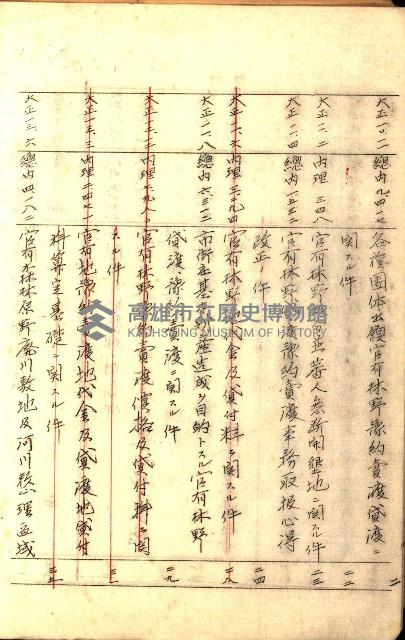 二
大正一〇、二 總内九四一 各種團体出願官有林野豫約賣渡貸渡ニ
関スル件 二二
大正一二、二 内理三四八 官有林野内蕃人無斷開墾地ニ関スル件 二三
大正一一、四 總内一五三二 官有林野豫約賣渡事務取扱心得
改正ノ件 二四
大正一一、六 内理三二九四 官有林野代金及貸付料ニ関スル件 二八
大正一一、八 總内六三一三 市街庄基本財産造成ヲ目的トスル官有林野
貸渡豫約賣渡ニ関スル件 二九
大正一二、二 内理二九八 官有林野豫約賣渡價格及貸付料ニ関
スル件 三一
大正一三、三 内理二四二一 官有地豫約賣渡地代金及貸渡地貸付
料算定基礎ニ関スル件 三五
大正一三、六 總内四一八二 官有森林原野廢川敷地及河川整理區域
高雄市立歷史博物館
KAOHSIUNG MUSEUM OF HISTORY